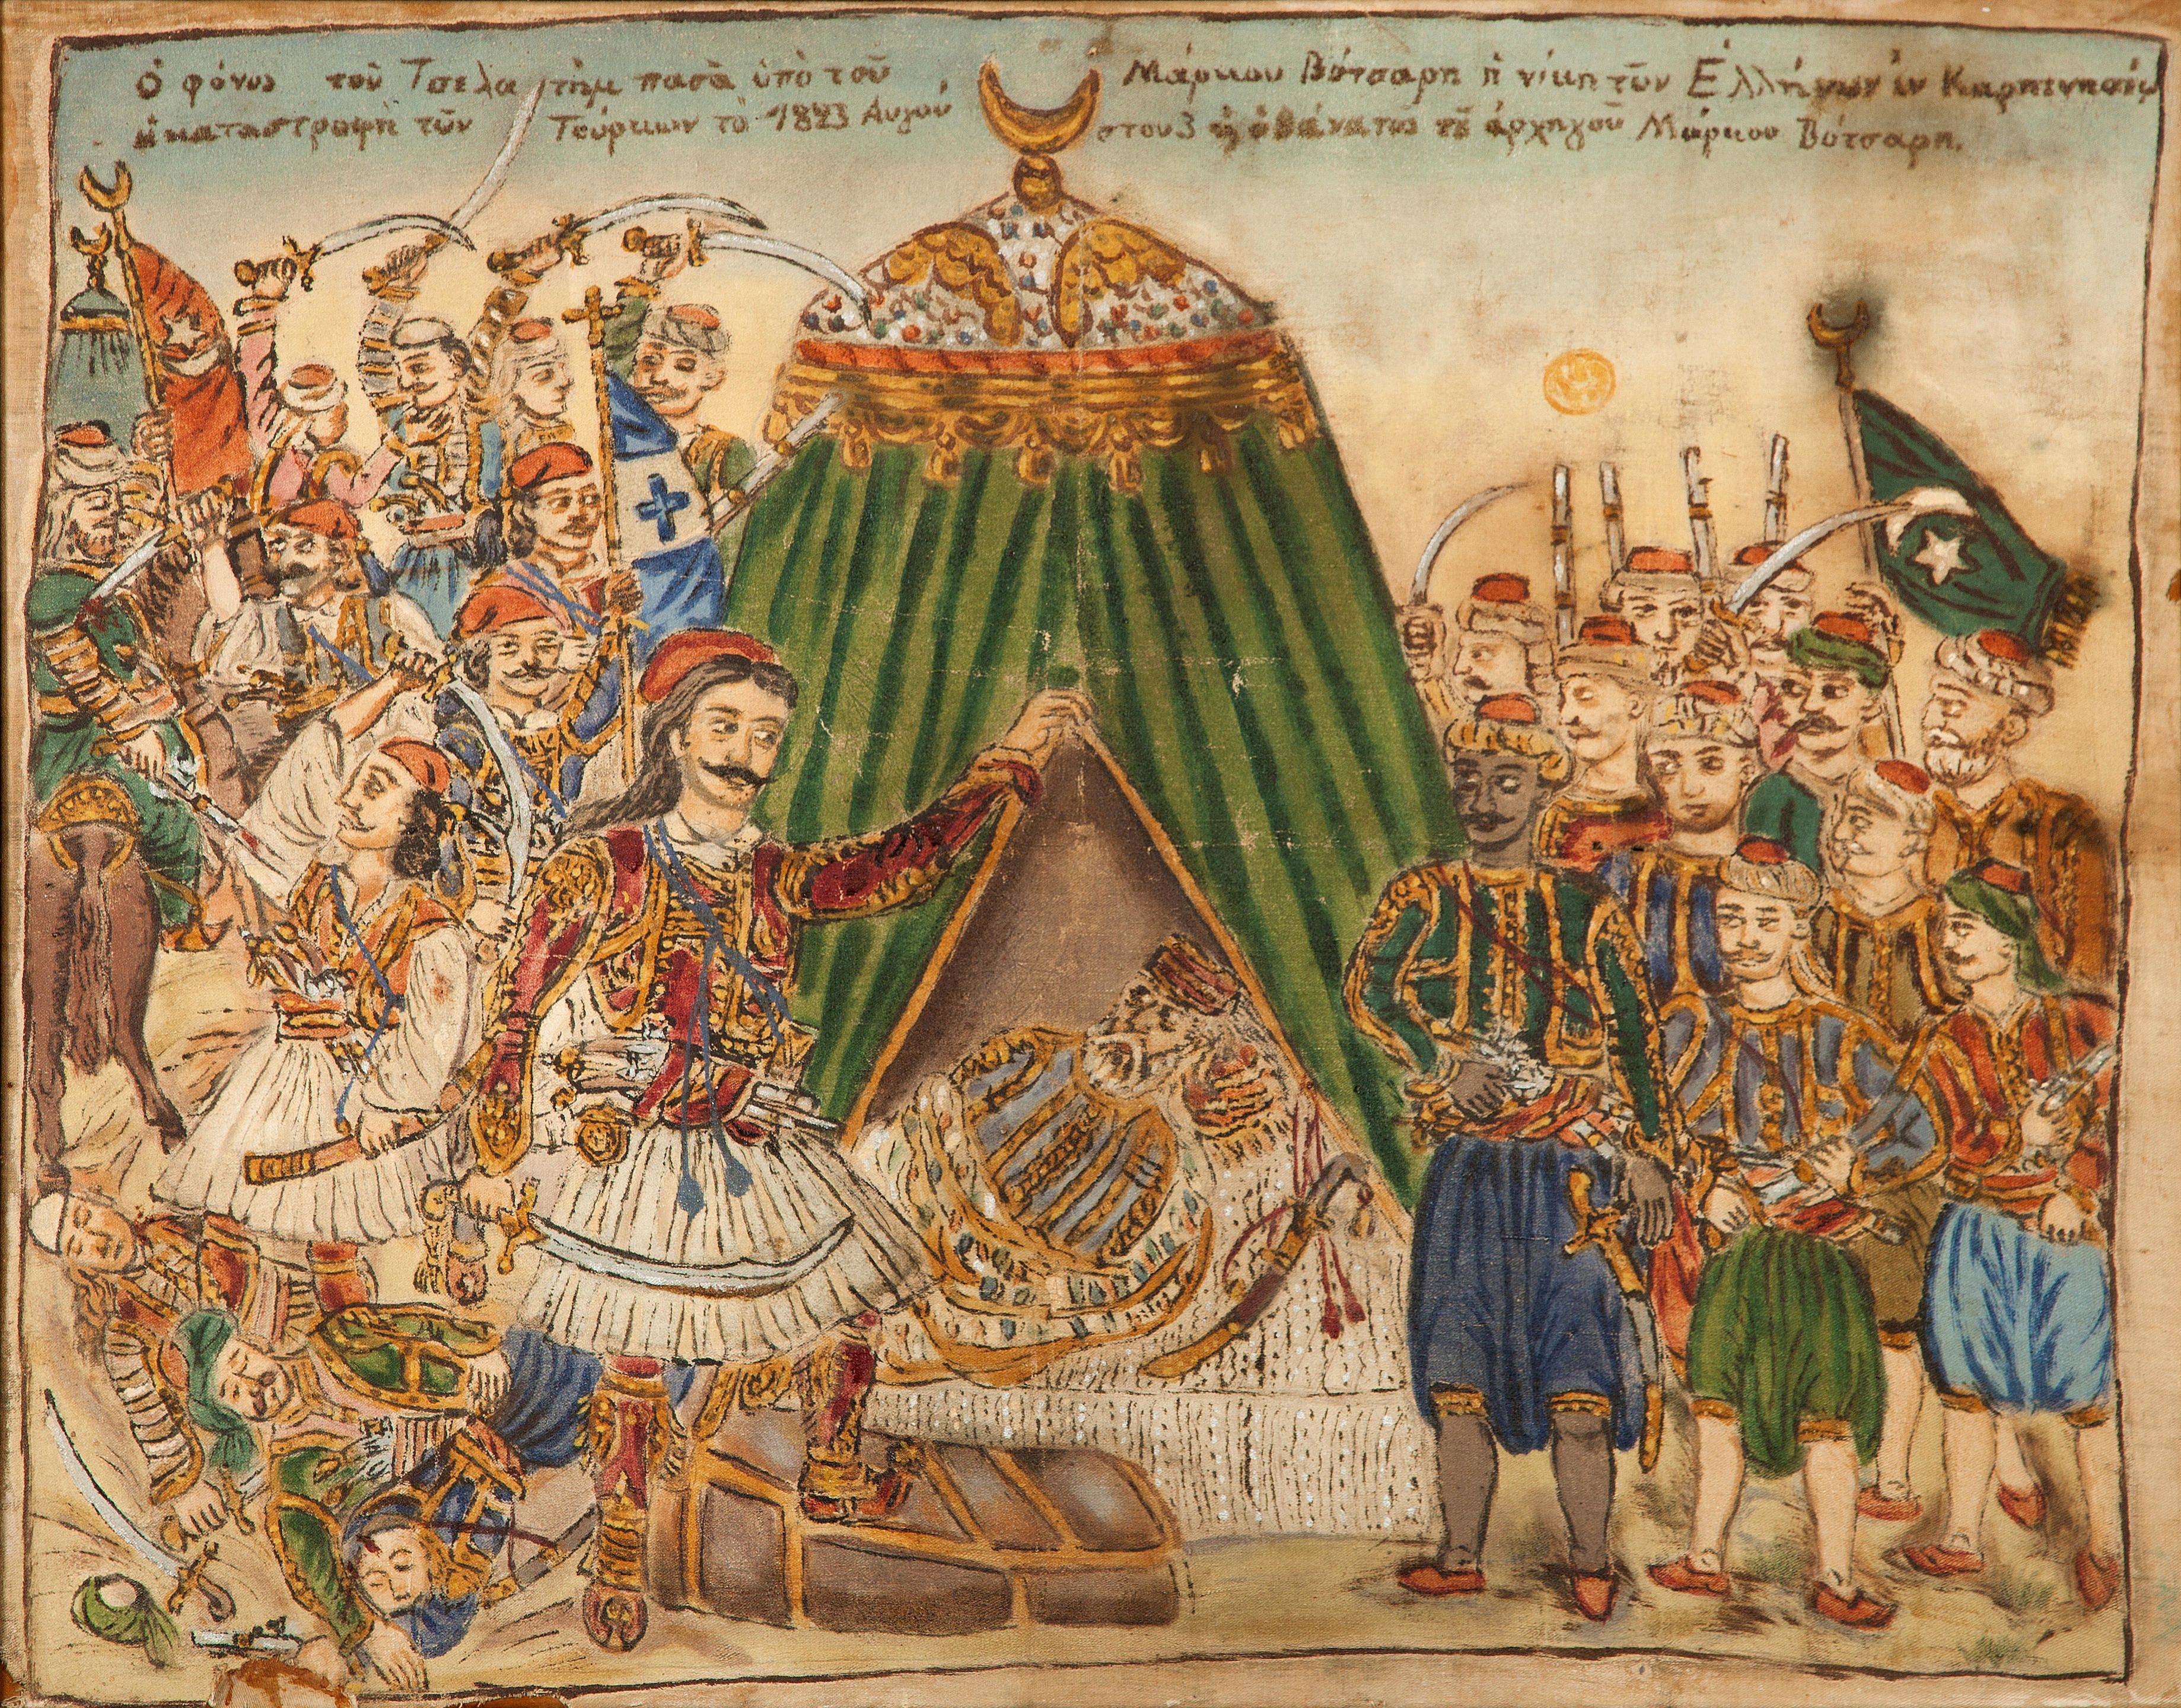 Ὁ φόνος τοῦ Τσελατὴμ πασᾶ ὑπὸ τοῦ Μάρκου Βότσαρη ἡ νίκη τῶν Ἑλλήνων ἐν Καρπενησίῳ
ἡ καταστροφὴ τῶν Τούρκων τὸ 1823 Αυγούστου 3 ὁ θάνατος τοῦ ἀρχηγοῦ Μάρκου Βότσαρη.